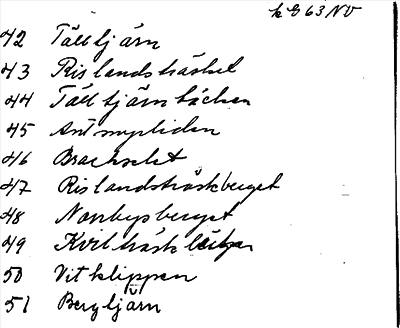 k G 63 NV
42 Tälltjärn
43 Rislandsträsket
44 Tälltjärnbäcken
45 Antmyrliden
46
47 Rislandsträskberget
48 Norrbysberget
49 Kvitträsk
50 Vitklippen
51 Bergtjärn